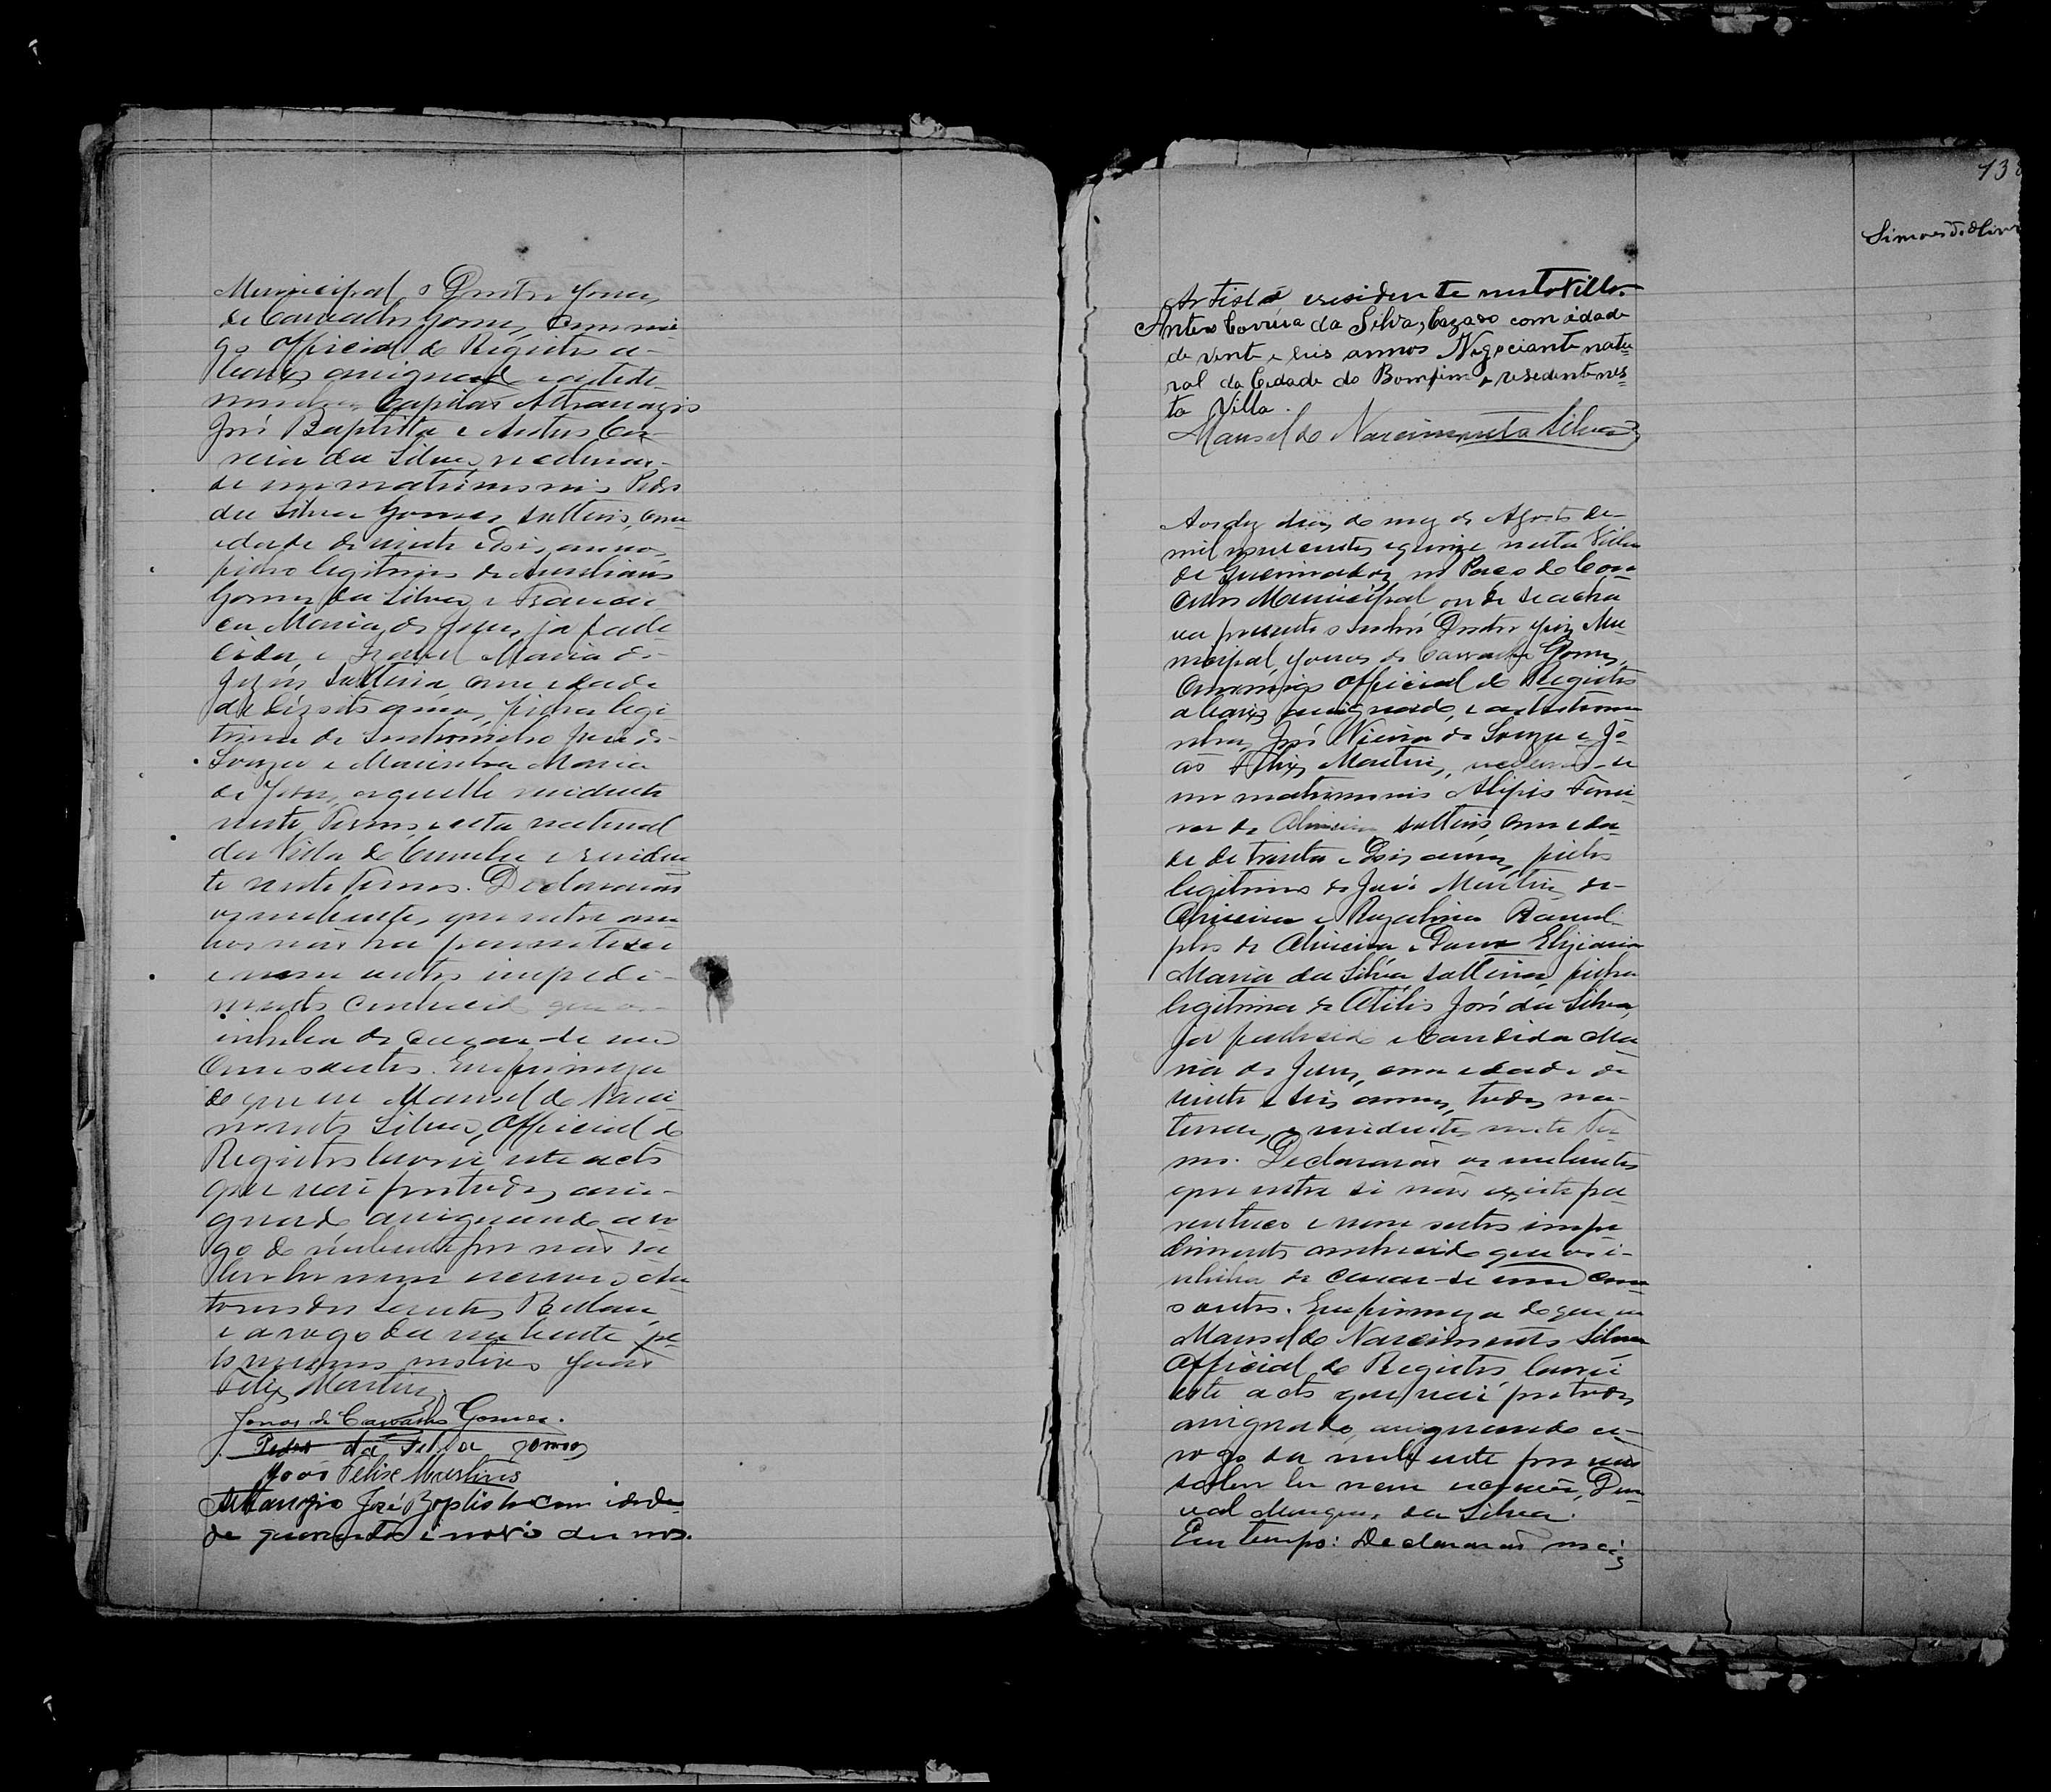 Municipal o Doutor Jonas
de Carvalho Gomes, commi-
go Official do Registro a-
baixo assignado e as teste-
munhas Capitão Athanazio
José Baptista e Antero Cor-
reia da Silva, receberam-
se em matrimonio Pedro
da Silva Gomes solteiro, com
edade de vinte e dois annos,
filho legitimo de
Gomes da Silva e Francis
ca Maria de Jesus, ja falle
cida, e Izabel Maria de
Jezus, solteira, com edade
de dezoito annos, filha legi
tima de José de
Souza e Maria
de Jesus, aquelle residente
neste Termo, e esta natural
da Villa do Cumbe e residen
te neste Termo. Declararam
os nubentes, que entre am
bos não ha parentesco
e nem outro impedi-
mento conhecido que os
inhiba de cazar-se um
com o outro. Em firmeza
do que eu Manoel do Nasci-
mento Silva, Official do
Registro lavrei este acto
que vai por todos assi-
gnado assignando a ro
go do nubente por não sa
ber ler nem escrever o
dos Santos
e a rogo da nubente pe
lo mesmo motivo João
Felix Martins.
Jonas de Carvalho Gomes.
Pedro da Silva Gomes
João Felix Martins
Athanazio José Baptista com idade
de quarenta e novi annos.
138
Simões de Oliv
Artista residente nesta Villa.
Antero Corrêia da Silva, Cazado com idade
de vinte e seis annos Negociante natu-
ral da Cidade do Bomfim e resedente nes-
ta Villa.
Manoel do Nascimento Silva
Aos dez dias do mez de Agosto de
mil novecentos e quinze nesta Villa
de Queimadas, no Paço do Con
celho Municipal onde se acha
va presente o Senhor Doutor Juiz Mu-
nicipal, Jonas de Carvalho Gomes,
commigo Official do Registro
abaixo assignado, e as testemu
nhas, José Vieira de Souza e Jo-
ão Felix Martins, receberam-se
em matrimonio Alipio Ferrei-
ra de Oliveira solteiro, com eda-
de de trinta e dois annos, filho
legitimo de José Martins de
Oliveira e Rozalina
de Oliveira e Dona
Maria da Silva solteira, filha
legitima de Atilio José da Silva,
ja fallecido e Candida Ma
ria de Jesus, com edade de
vinte e seis annos, todos na-
turaes, e residentes neste Ter
mo. Declararam os nubentes
que entre si não existe pa
rentesco e nem outro impe
dimento conhecido que os i-
nhiba de cazar-se um com
o outro. Em firmeza do que eu
Manoel do Nascimento Silva
Official do Registro, lavrei
este acto que vai por todos
assignado, assignando a
rogo da nubente por não
saber ler nem escrever, Dur
val Marques da Silva.
Em tempo: Declararam mais